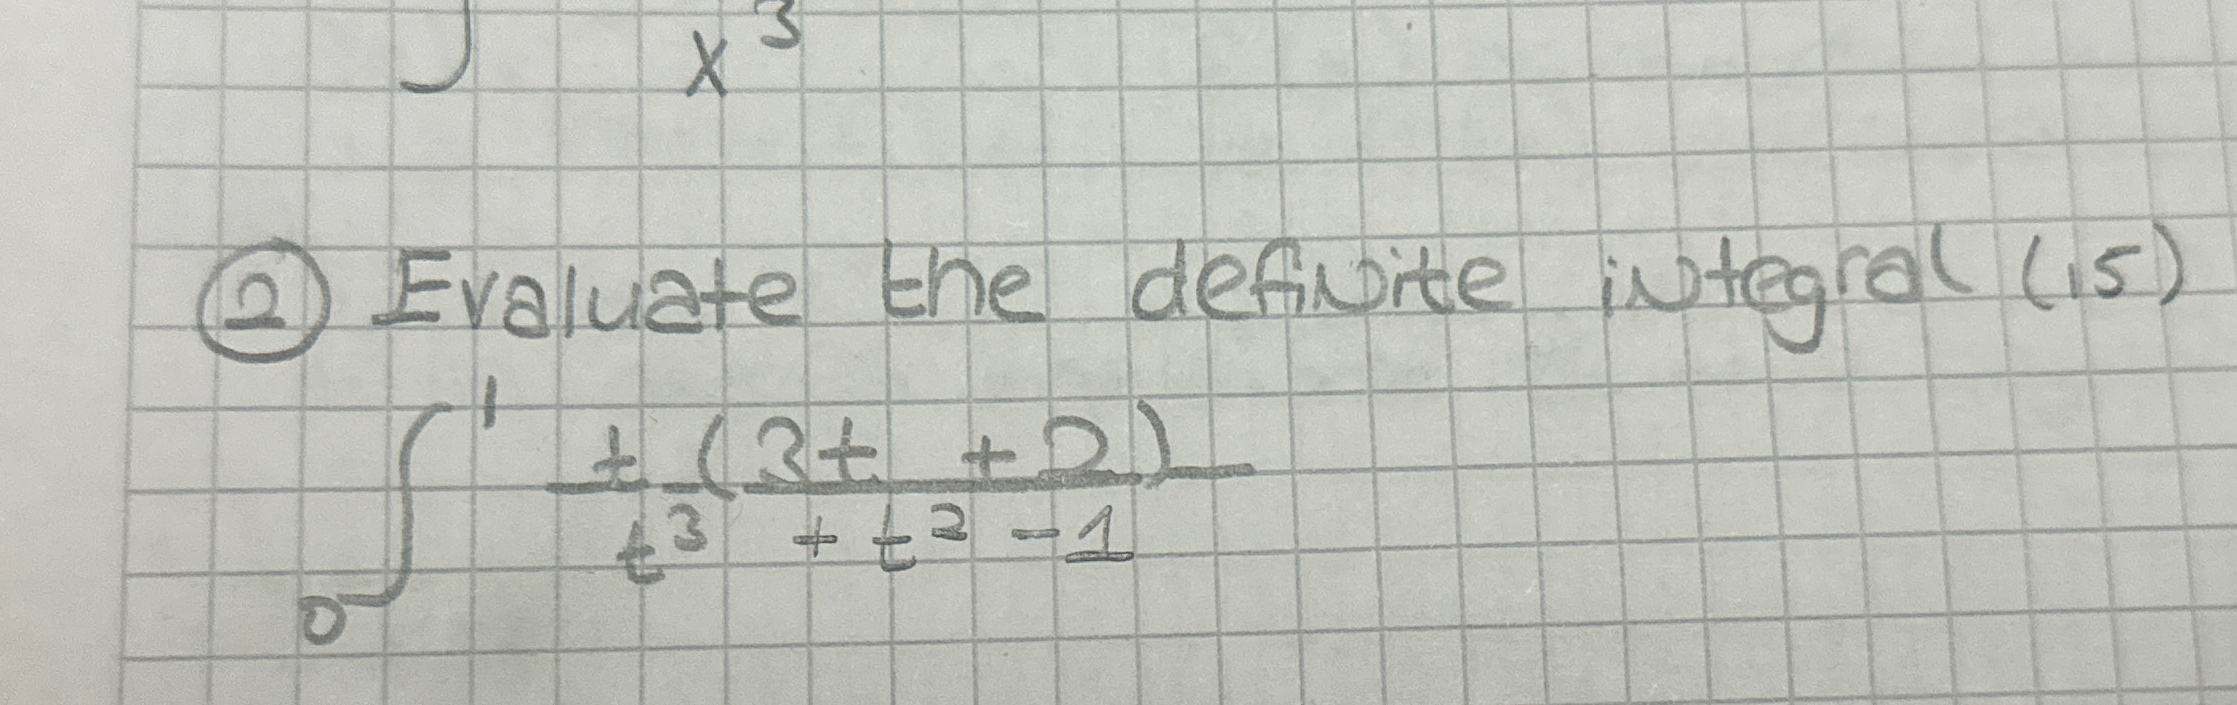 ∫ x³
② Evaluate the definite integral (15)
∫₀¹ t(3t + 2) / t³ + t² - 1